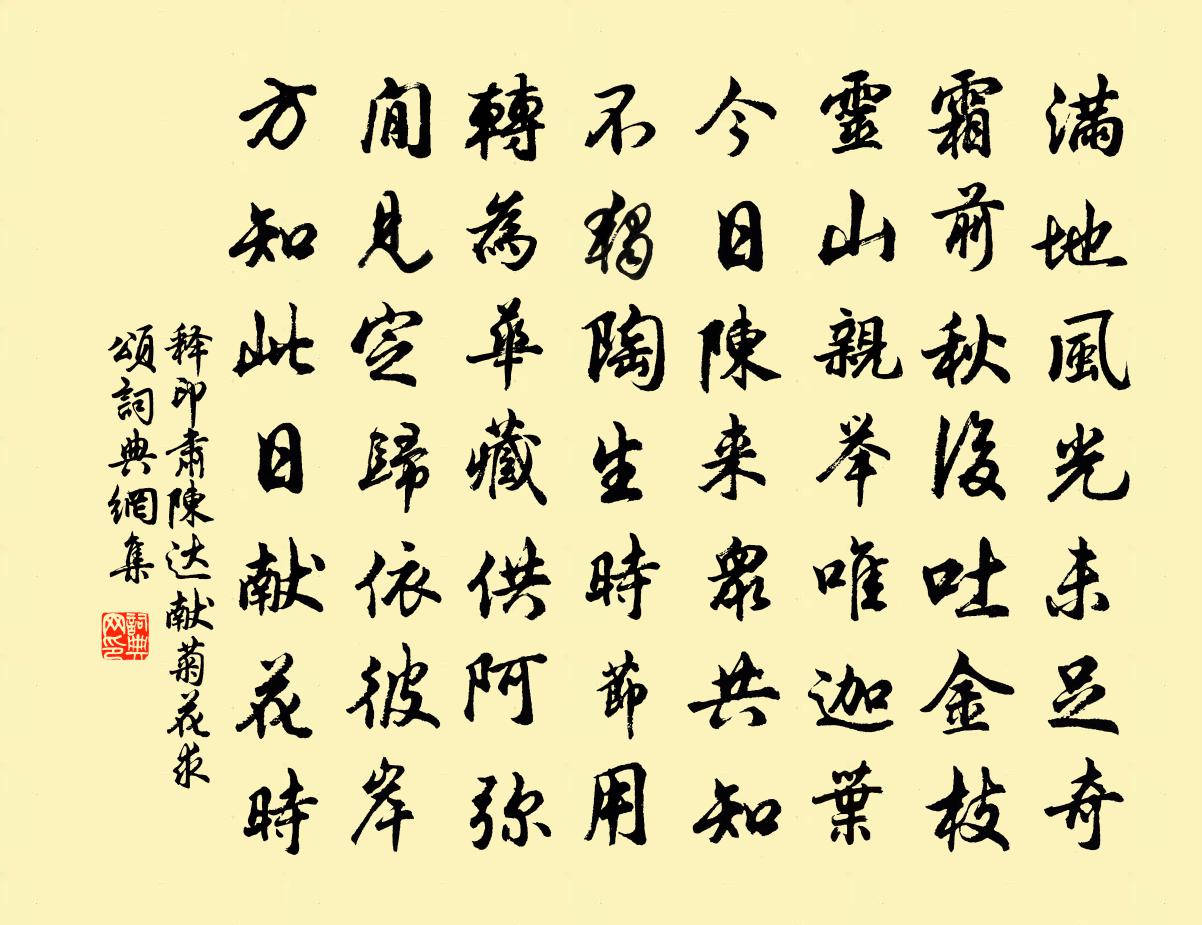 滿地風光未足奇
霜前秋後吐金枝
靈山親举唯迦葉
今日陳来衆共知
不獨陶生時節用
轉為華藏供阿弥
閒見定歸依彼岸
方知此日献花時
释印肃陳达献菊花求
頌詞典網集
詞典网印